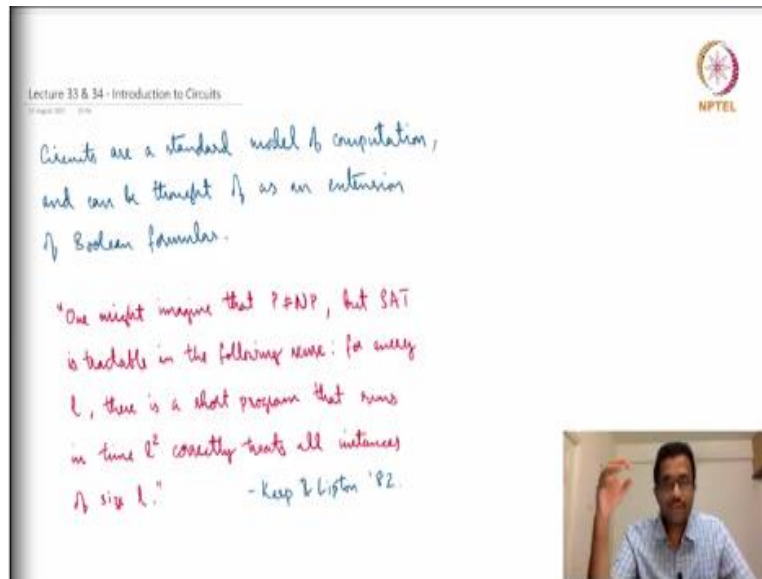 Lecture 33 & 34 - Introduction to Circuits
NPTEL
Circuits are a standard model of computation,
and can be thought of as an extension
of Boolean formulas.
"One might imagine that P≠NP, but SAT
is tractable in the following sense: for every
l, there is a short program that runs
in time l² correctly treats all instances
of size l."
- Karp & Lipton '82.